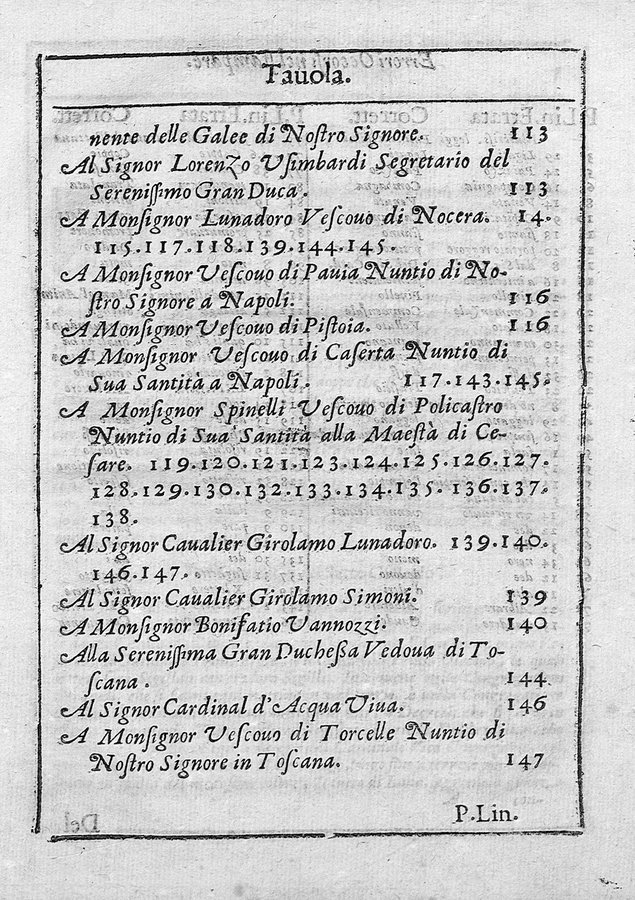 Tauola.
nente delle Galee di Noſtro Signore. 113
Al Signor Lorenzo Vſimbardi Segretario del
Sereniſſimo Gran Duca. 113
A Monſignor Lunadoro Veſcouo di Nocera. 14.
115.117.118.139.144.145.
A Monſignor Veſcouo di Pauia Nuntio di No-
ſtro Signore a Napoli. 116
A Monſignor Veſcouo di Piſtoia. 116
A Monſignor Veſcouo di Caſerta Nuntio di
Sua Santità a Napoli. 117.143.145.
A Monſignor Spinelli Veſcouo di Policaſtro
Nuntio di Sua Santità alla Maeſtà di Ce-
ſare. 119.120.121.123.124.125.126.127.
128.129.130.132.133.134.135.136.137.
138.
Al Signor Caualier Girolamo Lunadoro. 139.140.
146.147.
Al Signor Caualier Girolamo Simoni. 139
A Monſignor Bonifatio Vannozzi. 140
Alla Sereniſſima Gran Ducheßa Vedoua di To-
ſcana. 144.
Al Signor Cardinal d'Acqua Viua. 146
A Monſignor Veſcouo di Torcelle Nuntio di
Noſtro Signore in Toſcana. 147
P.Lin.